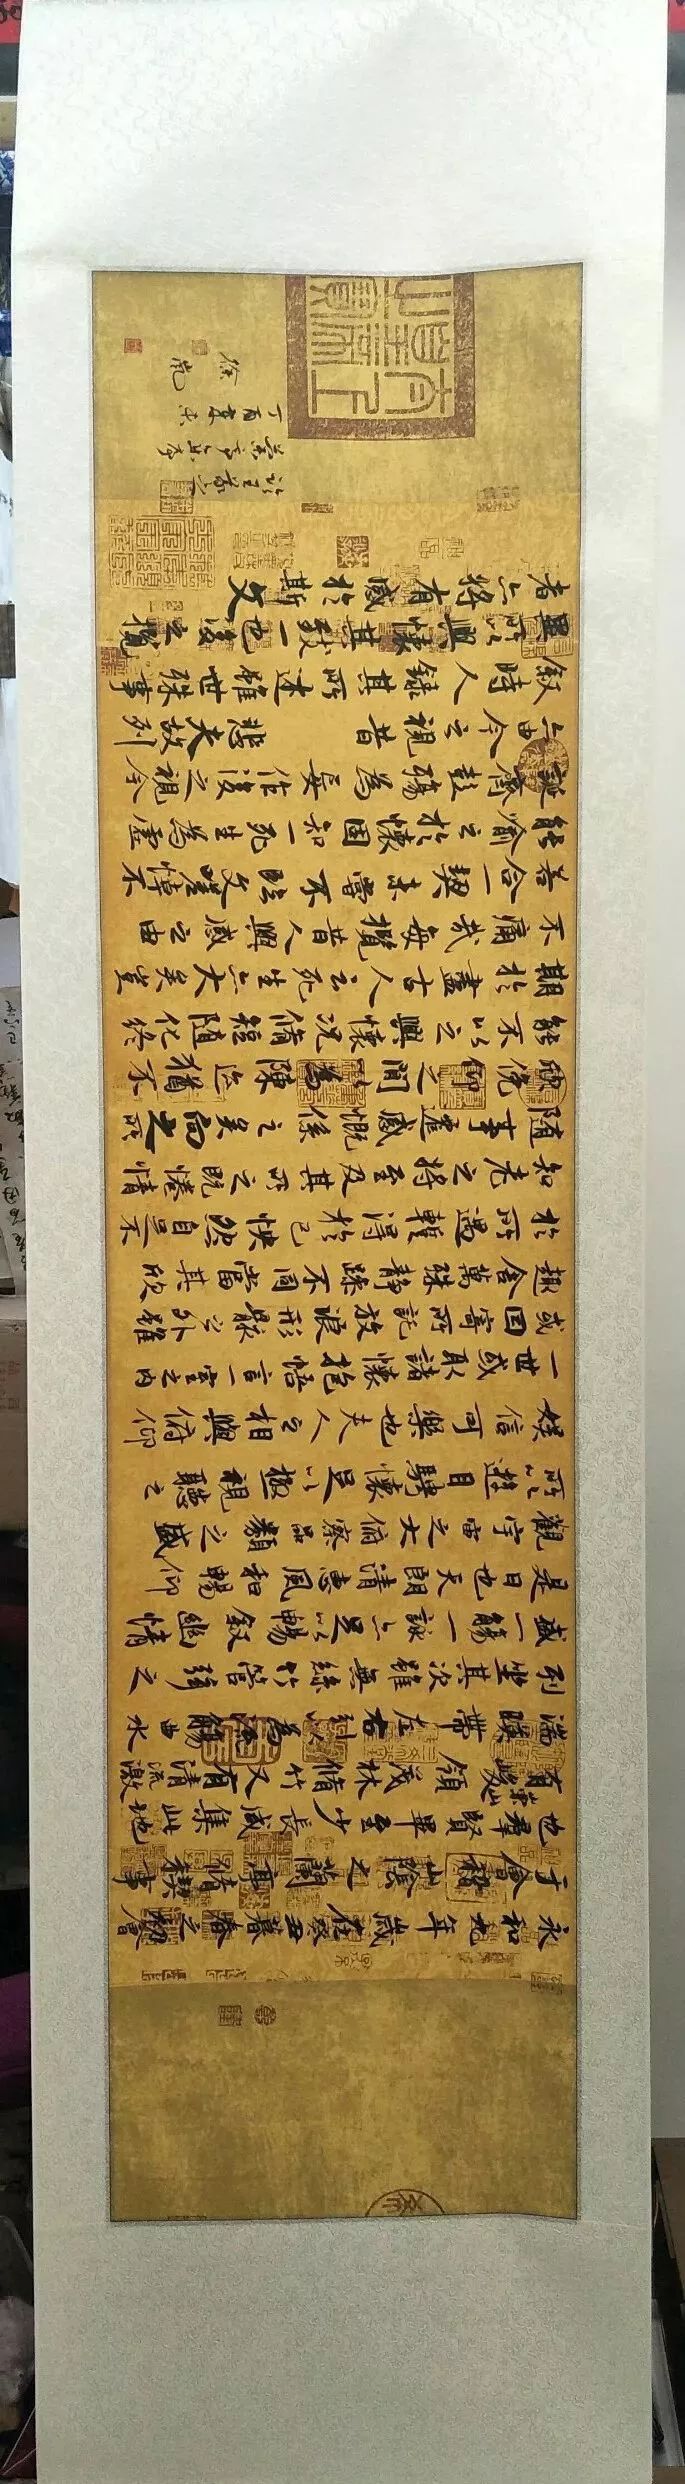 永和九年歲在癸丑暮春之初會
于會稽山陰之蘭亭脩禊事
也羣賢畢至少長咸集此地
有崇山峻領茂林脩竹又有清流激
湍暎帶左右引以為流觴曲水
列坐其次雖無絲竹管弦之
盛一觴一詠亦足以暢叙幽情
是日也天朗清惠風和暢仰
觀宇宙之大俯察品類之盛
所以遊目騁懷足以極視聽之
娛信可樂也夫人之相與俯仰
一世或取諸懷抱悟言一室之內
或因寄所託放浪形骸之外雖
趣舍萬殊靜躁不同當其欣
於所遇輒得於己快然自足不
知老之將至及其所之既惓情
隨事遷感慨係之矣向之所
欣俛仰之間以為陳迹猶不
能不以之興懷況脩短隨化終
期於盡古人云死生亦大矣豈
不痛哉每攬昔人興感之由
若合一契未嘗不臨文嗟悼不
能喻之於懷固知一死生為虛
誕齊彭殤為妄作後之視今
亦由今之視昔悲夫故列
叙時人錄其所述雖世殊事
異所以興懷其致一也後之攬
者亦將有感於斯文
丁酉
徐嵐